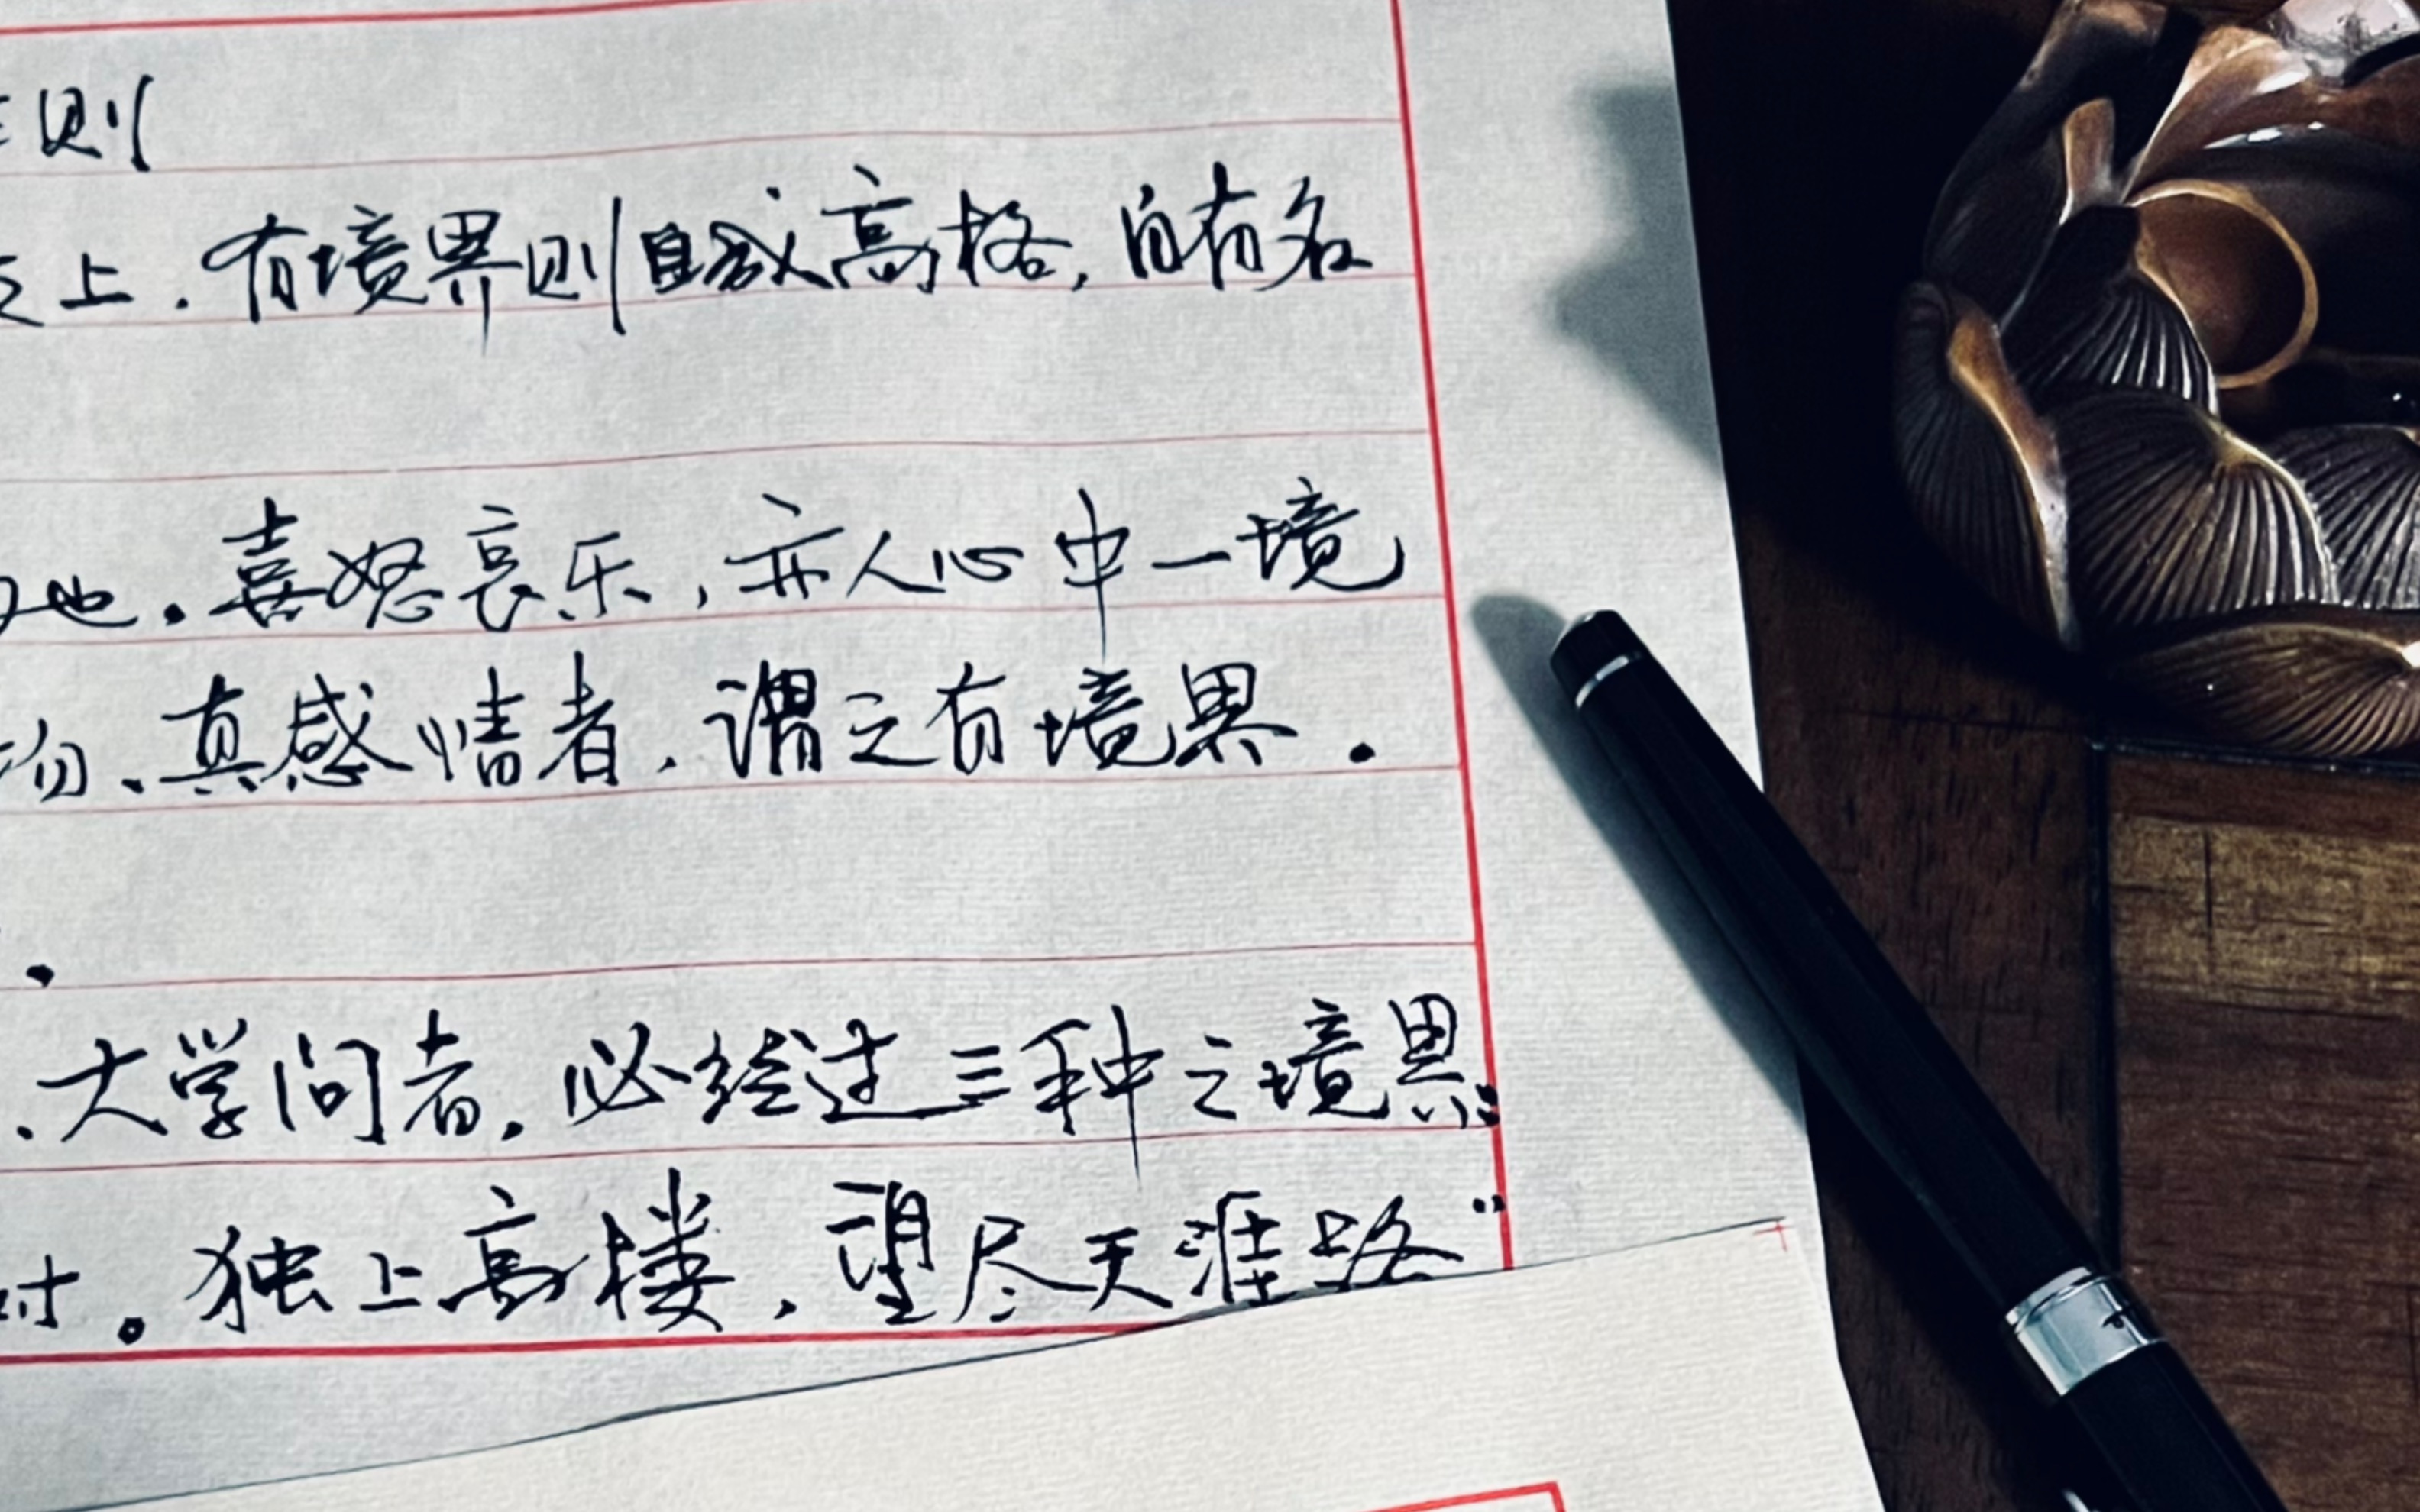 则
上.有境界则自成高格,自有名
也.喜怒哀乐,亦人心中一境
物、真感情者,谓之有境界.
.
.大学问者,必经过三种之境界:
对。独上高楼,望尽天涯路"